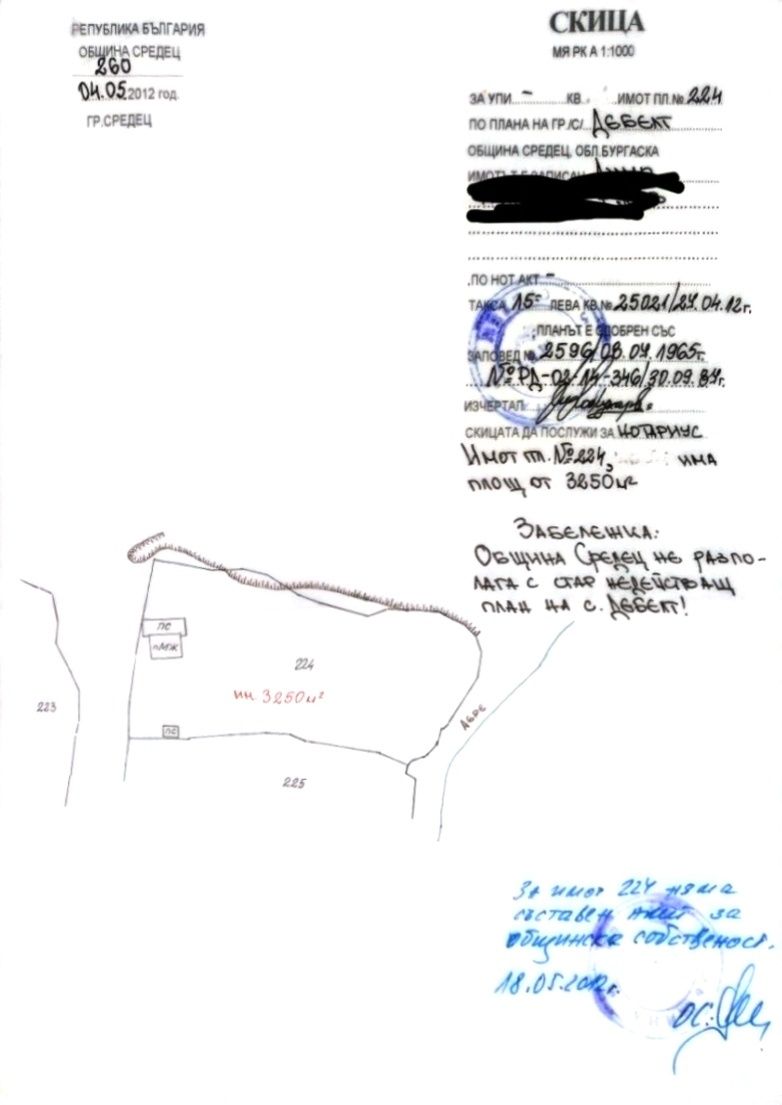 РЕПУБЛИКА БЪЛГАРИЯ
ОБЩИНА СРЕДЕЦ
260
04.05.2012 год.
ГР.СРЕДЕЦ
СКИЦА
МЯРКА 1:1000
ЗА УПИ - КВ. ИМОТ ПЛ.№ 224
ПО ПЛАНА НА ГР./С/. ДЕБЕЛТ
ОБЩИНА СРЕДЕЦ, ОБЛ.БУРГАСКА
ПО НОТ АКТ -
ТАКСА 15= ЛЕВА КВ.№ 25021/27.04.12г.
ПЛАНЪТ Е ОДОБРЕН СЪС
ЗАПОВЕД № 2596/08.07.1965г.
№РД-02-14-346/30.09.87г.
ИЗЧЕРТАЛ:
СКИЦАТА ДА ПОСЛУЖИ ЗА НОТАРИУС
ИМОТ ПЛ. №224, ИМА
ПЛОЩ ОТ 3250м²
ЗАБЕЛЕЖКА:
ОБЩИНА СРЕДЕЦ НЕ РАЗПО-
ЛАГА С СТАР НЕДЕЙСТВАЩ
ПЛАН НА С. ДЕБЕЛТ!
ПС
пМЖ
224
им. 3250м²
223
ПС
225
ДЕРЕ
За имот 224 няма
съставен акт за
общинска собственост.
18.05.2012г.